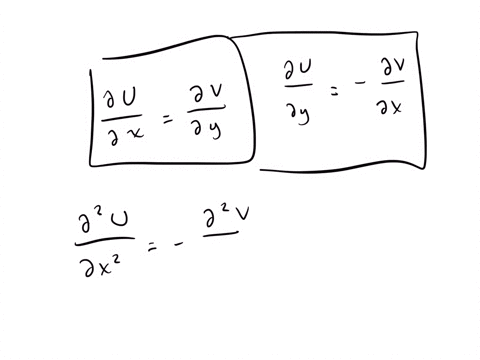 ∂U/∂x = ∂V/∂y
∂U/∂y = - ∂V/∂x
∂²U/∂x² = - ∂²V/